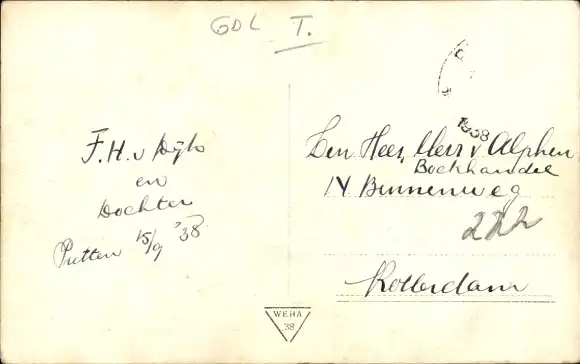 GDL T.
F.H. v Dijk
en
Dochter
Putten 15/9 '38
1938
Den Heer v Alphen
Boekhandel
Binnenweg
222
Rotterdam
WEHA
38